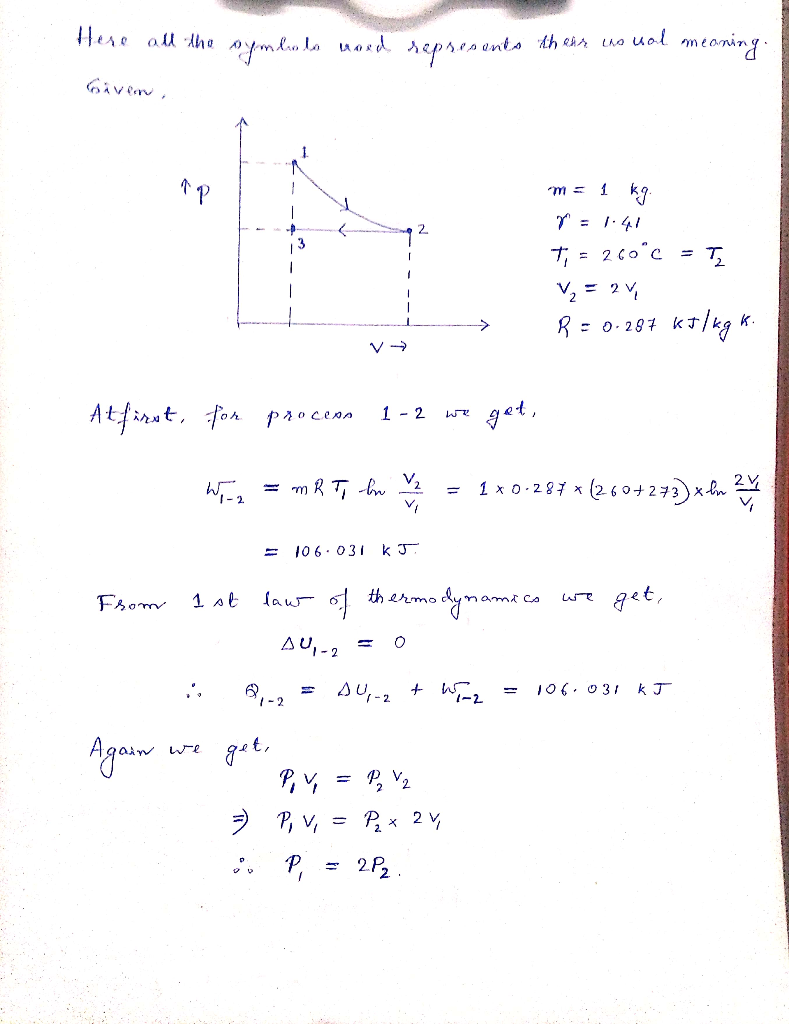 Here all the symbols used represents their usual meaning.
Given,
1
↑ P
2
3
V →
m = 1 kg.
γ = 1.41
T₁ = 260°C = T₂
V₂ = 2V₁
R = 0.287 kJ/kg K.
At first, for process 1-2 we get,
W₁₋₂ = mRT₁ ln V₂/V₁ = 1 × 0.287 × (260+273) × ln 2V₁/V₁
= 106.031 kJ.
From 1st law of thermodynamics we get,
ΔU₁₋₂ = 0
∴ Q₁₋₂ = ΔU₁₋₂ + W₁₋₂ = 106.031 kJ
Again we get,
P₁V₁ = P₂V₂
⇒ P₁V₁ = P₂ × 2V₁
∴ P₁ = 2P₂.